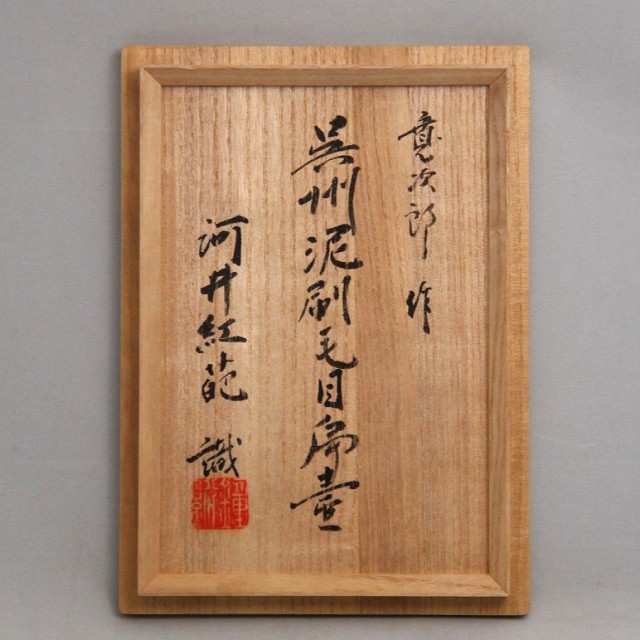 寛次郎 作
呉州泥刷毛目扁壺
河井紅葩 識